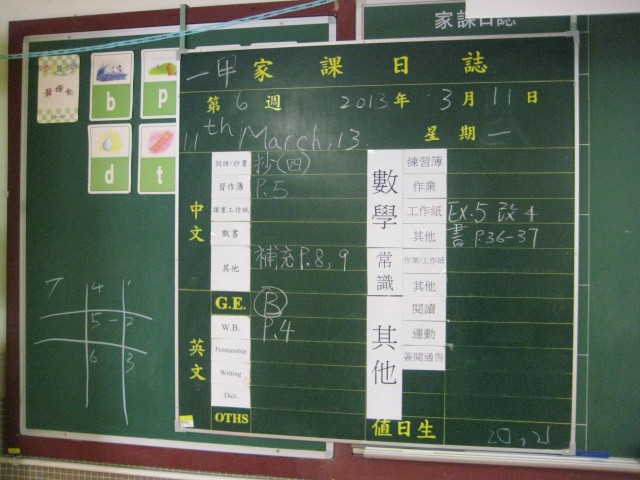 家課日誌
一甲 家課日誌
第 6 週 2013年 3月11日
11th March, 13. 星期一
b
p
d
t
中文
詞語/抄書 抄(四)
習作簿 P.5
課業工作紙
默書
其他 補充 P.8, 9
英文
G.E. B
W.B. P.4
Penmanship
Writing
Dict.
OTHS
數學
練習簿
作業
工作紙 EX.5 改4
其他 書 P.36-37
常識
作業/工作紙
其他
其他
閱讀
運動
簽閱通告
值日生 20, 21
7 4 1
5 - 2
6 3